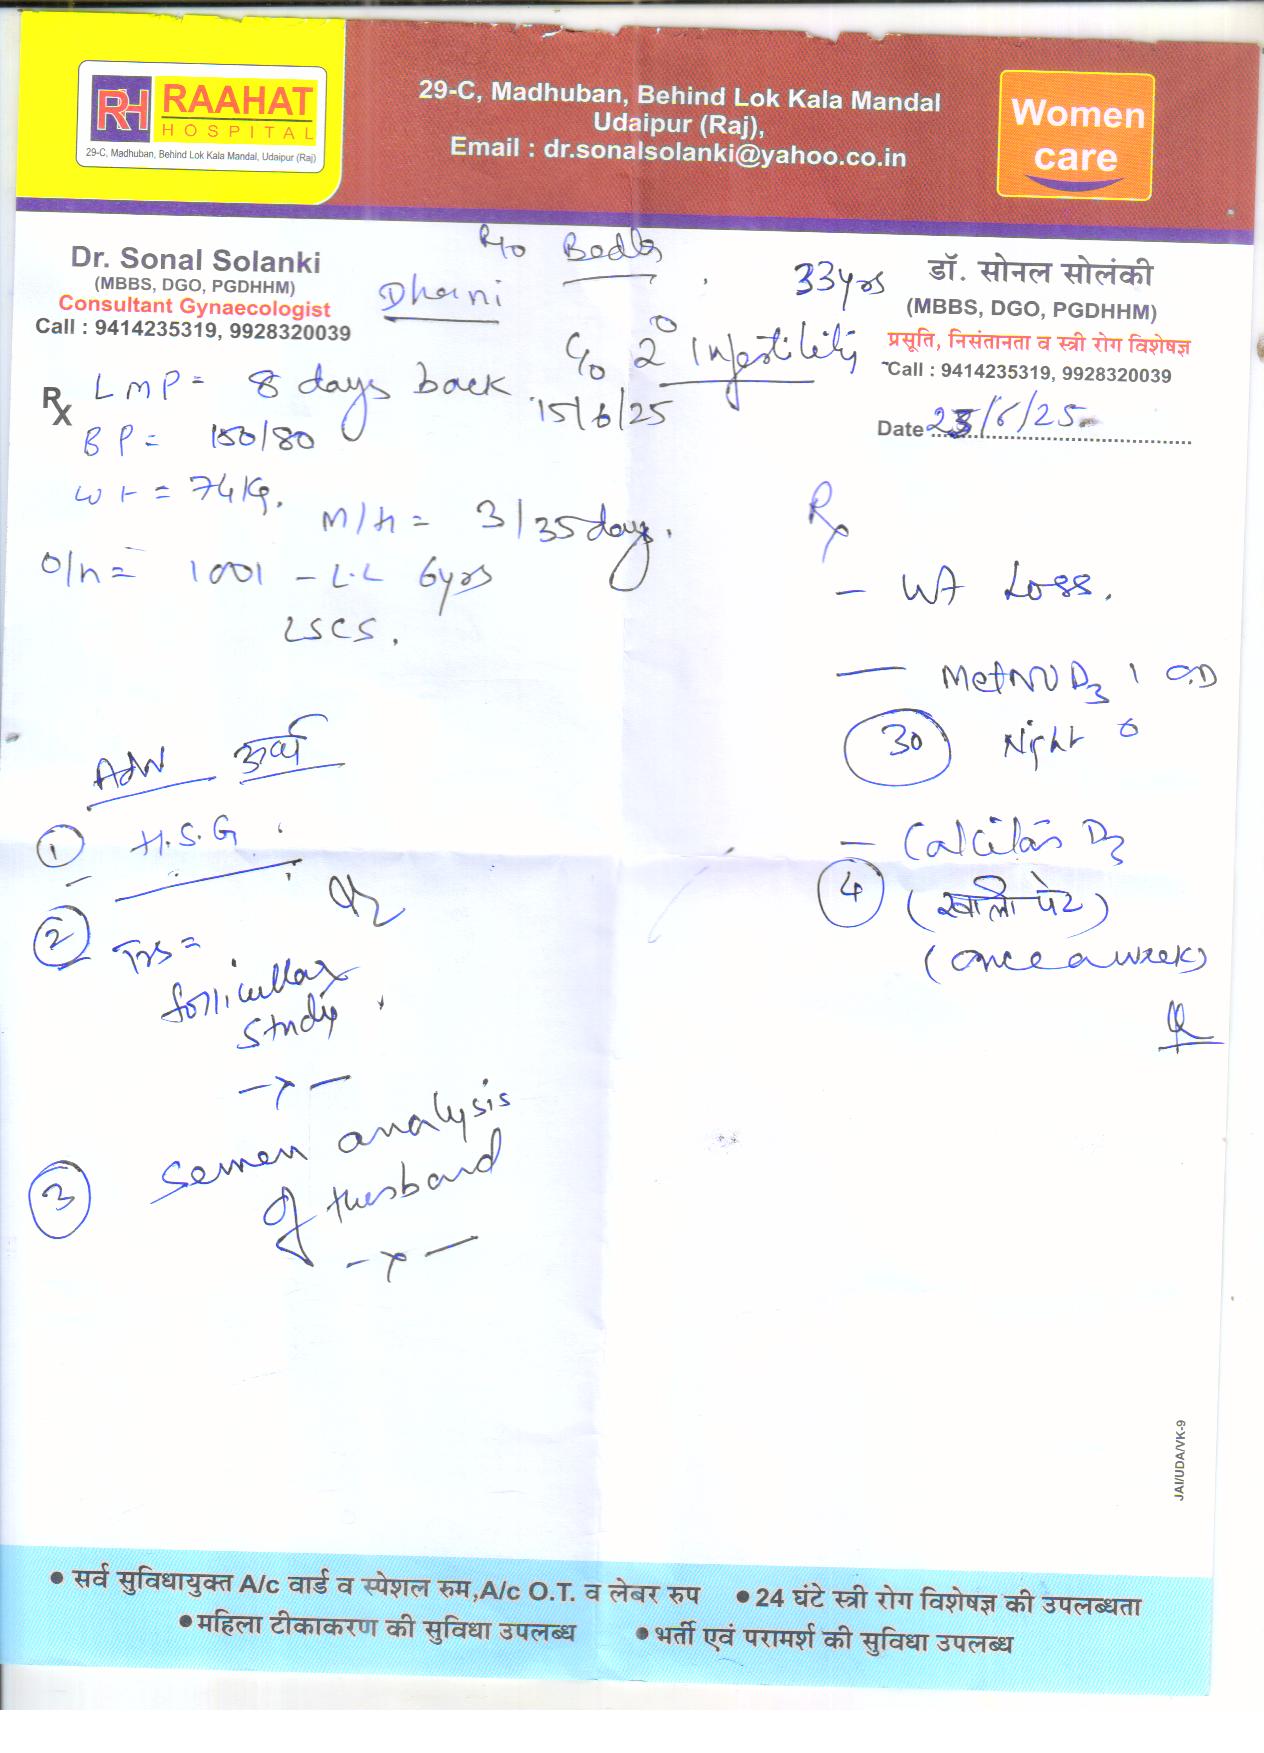 RH RAAHAT
HOSPITAL
29-C, Madhuban, Behind Lok Kala Mandal, Udaipur (Raj)
29-C, Madhuban, Behind Lok Kala Mandal
Udaipur (Raj),
Email : dr.sonalsolanki@yahoo.co.in
Women
care
Dr. Sonal Solanki
(MBBS, DGO, PGDHHM)
Consultant Gynaecologist
Call : 9414235319, 9928320039
डॉ. सोनल सोलंकी
(MBBS, DGO, PGDHHM)
प्रसूति, निसंतानता व स्त्री रोग विशेषज्ञ
Call : 9414235319, 9928320039
Date 23/6/25
R/o
33yrs
C/o 2° Infertility
Rx
LMP = 8 days back
15/6/25
BP =
wt = 74 Kg.
M/H = 3/35 days.
O/H = 1001 - L.L 6yrs
LSCS.
Adv
1 H.S.G.
2 TVS =
follicular
study.
-x-
3 Semen analysis
of Husband
-x-
Rx
- Wt Loss.
- D3 1 OD
30 Night
- D3
4 (खाली पेट)
(once a week)
JAI/UDA/VK-9
• सर्व सुविधायुक्त A/c वार्ड व स्पेशल रुम,A/c O.T. व लेबर रुप • 24 घंटे स्त्री रोग विशेषज्ञ की उपलब्धता
• महिला टीकाकरण की सुविधा उपलब्ध • भर्ती एवं परामर्श की सुविधा उपलब्ध